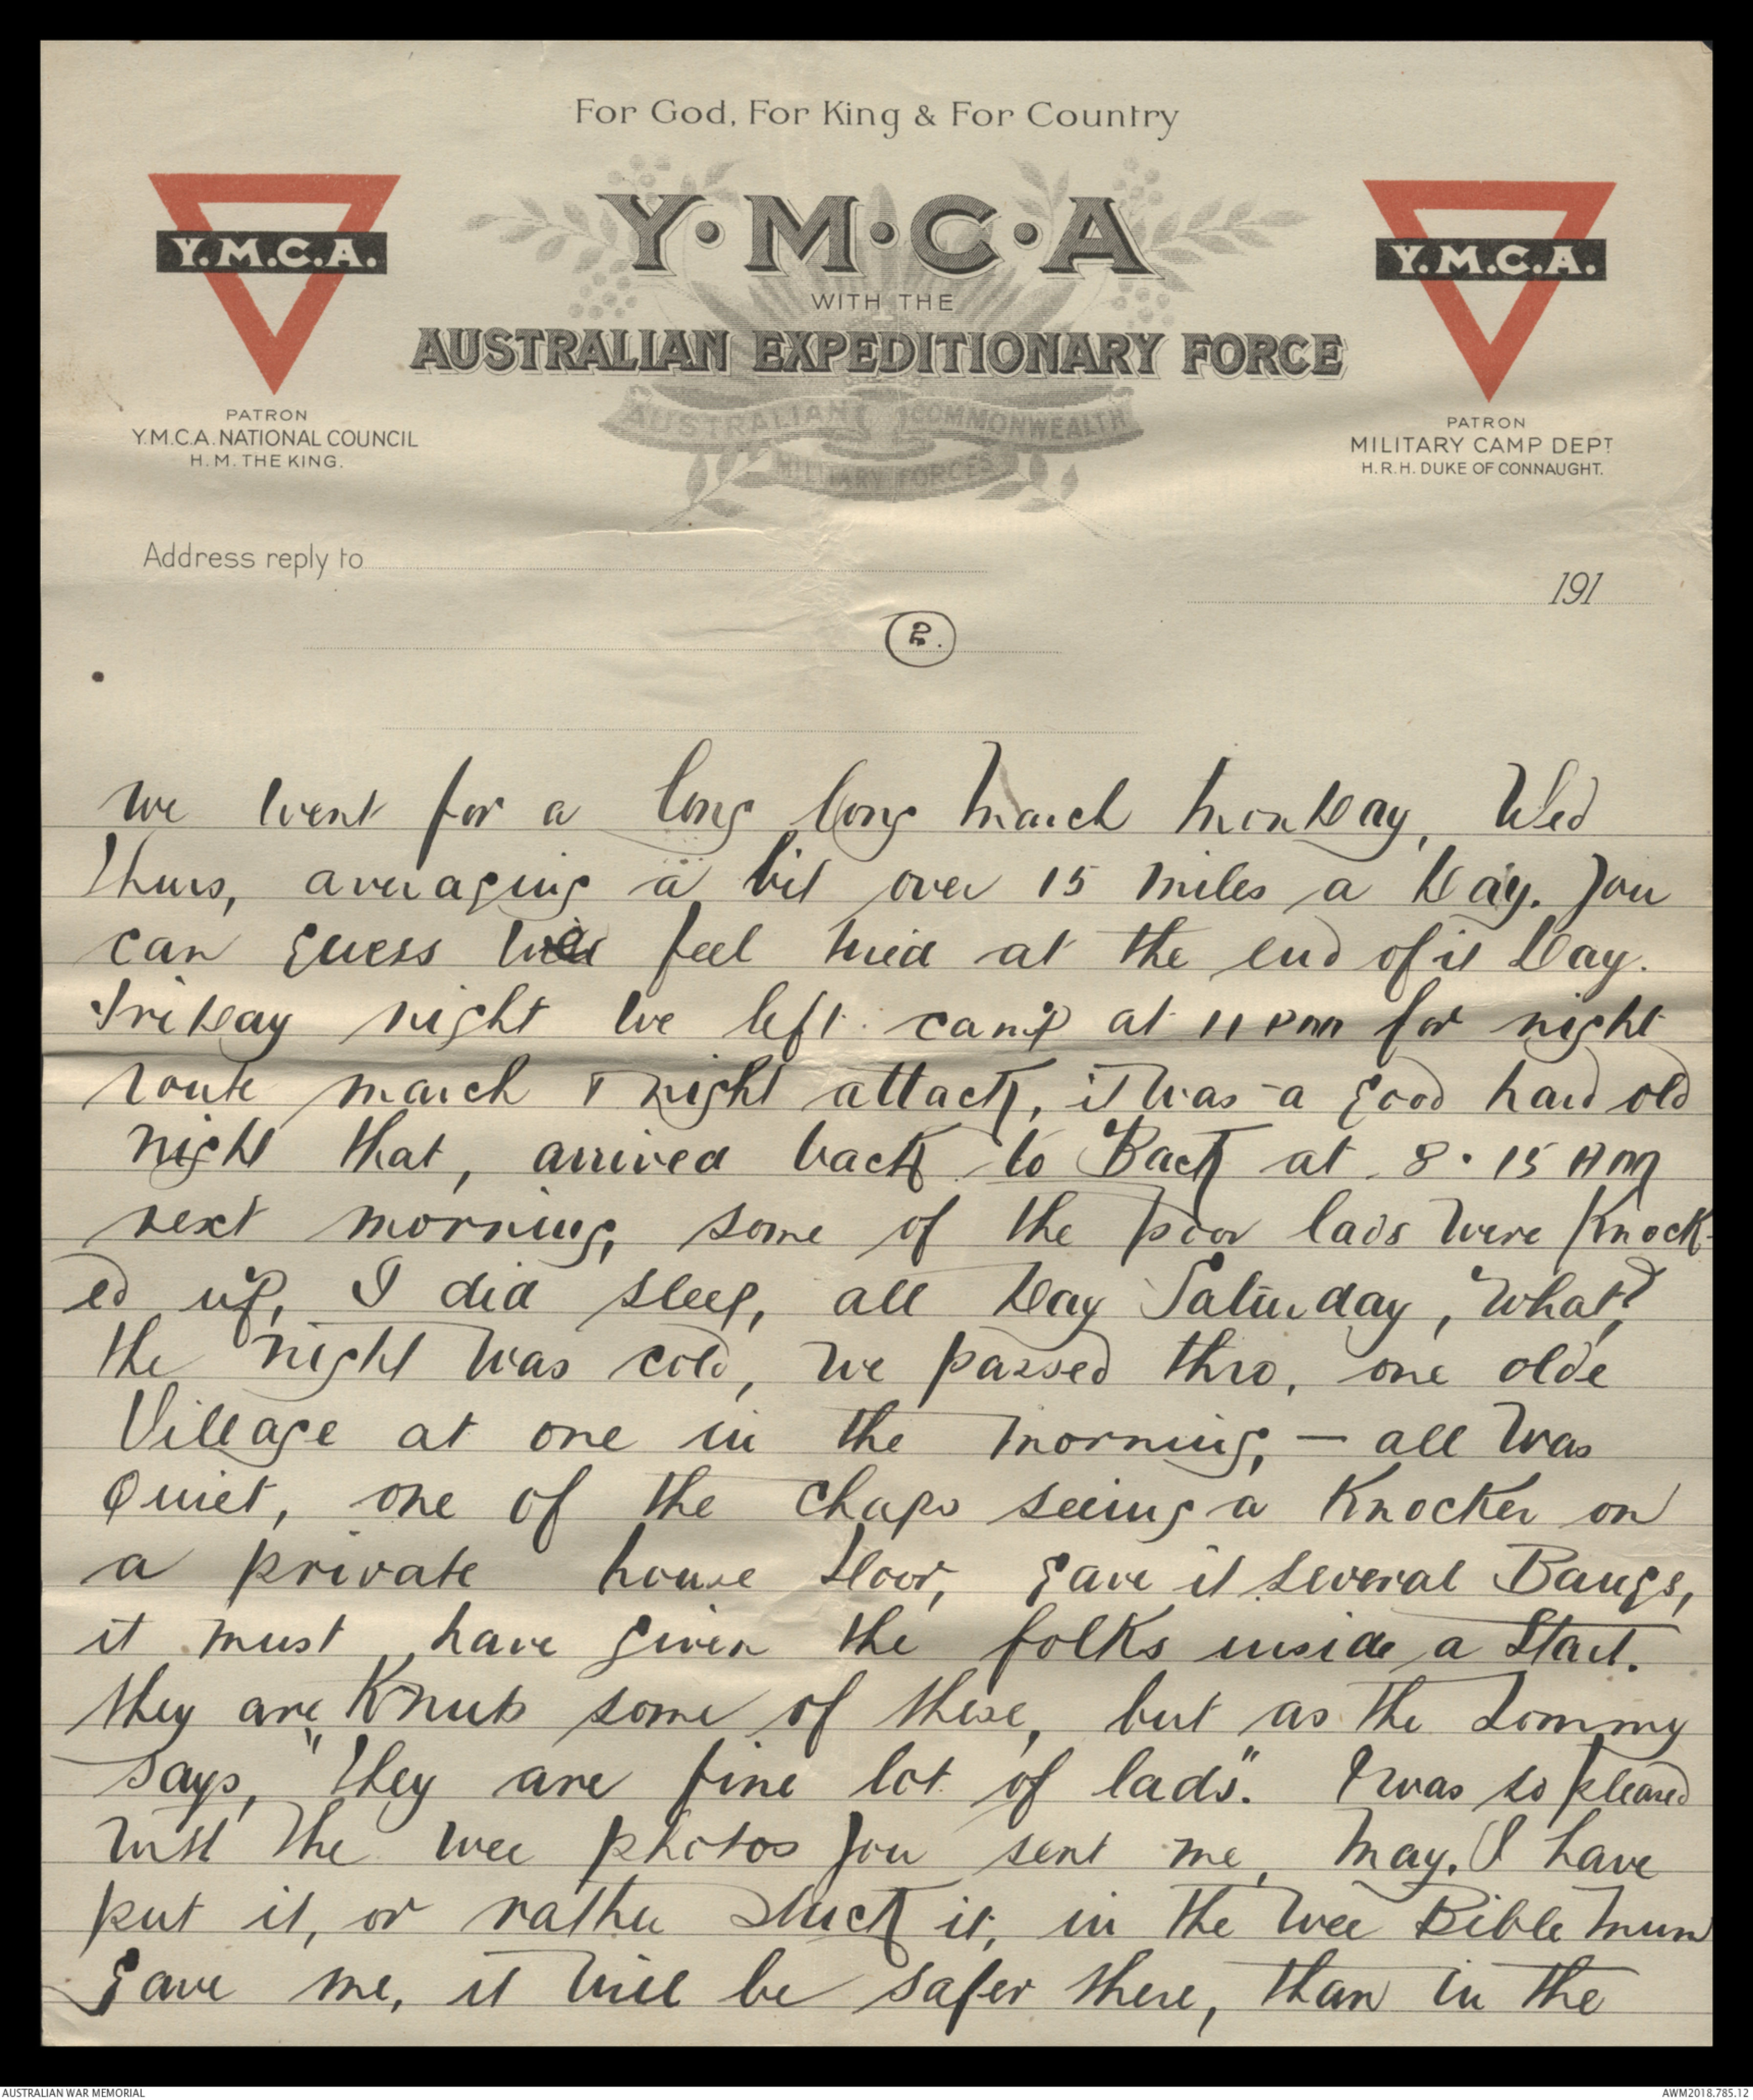 For God, For King & For Country
Y.M.C.A.
Y.M.C.A
Y.M.C.A.
WITH THE
AUSTRALIAN EXPEDITIONARY FORCE
AUSTRALIAN COMMONWEALTH
MILITARY FORCES
PATRON
Y.M.C.A. NATIONAL COUNCIL
H.M. THE KING.
PATRON
MILITARY CAMP DEPT
H.R.H. DUKE OF CONNAUGHT.
Address reply to
191
2.
We went for a long long march monday, Wed
Thurs, averaging a bit over 15 miles a day. You
can guess we feel tried at the end of it day.
Friday night we left camp at 11 PM for night
route march & night attack, it was a good hard old
night that, arrived back to Back at 8.15 AM
next morning, some of the poor lads were knock-
ed up, I did sleep, all day Saturday, what?
the night was cold, we passed thro, one olde
Village at one in the morning, — all was
Quiet, one of the chaps seeing a Knocker on
a private house door, gave it several Bangs,
it must have given the folks inside a start.
they are Knuts some of these, but as the Tommy
says, "they are fine lot of lads". I was so pleased
with the wee photos you sent me, May. I have
put it, or rather stuck it, in the wee Bible Mum
gave me, it will be safer there, than in the
AUSTRALIAN WAR MEMORIAL
AWM2018.785.12